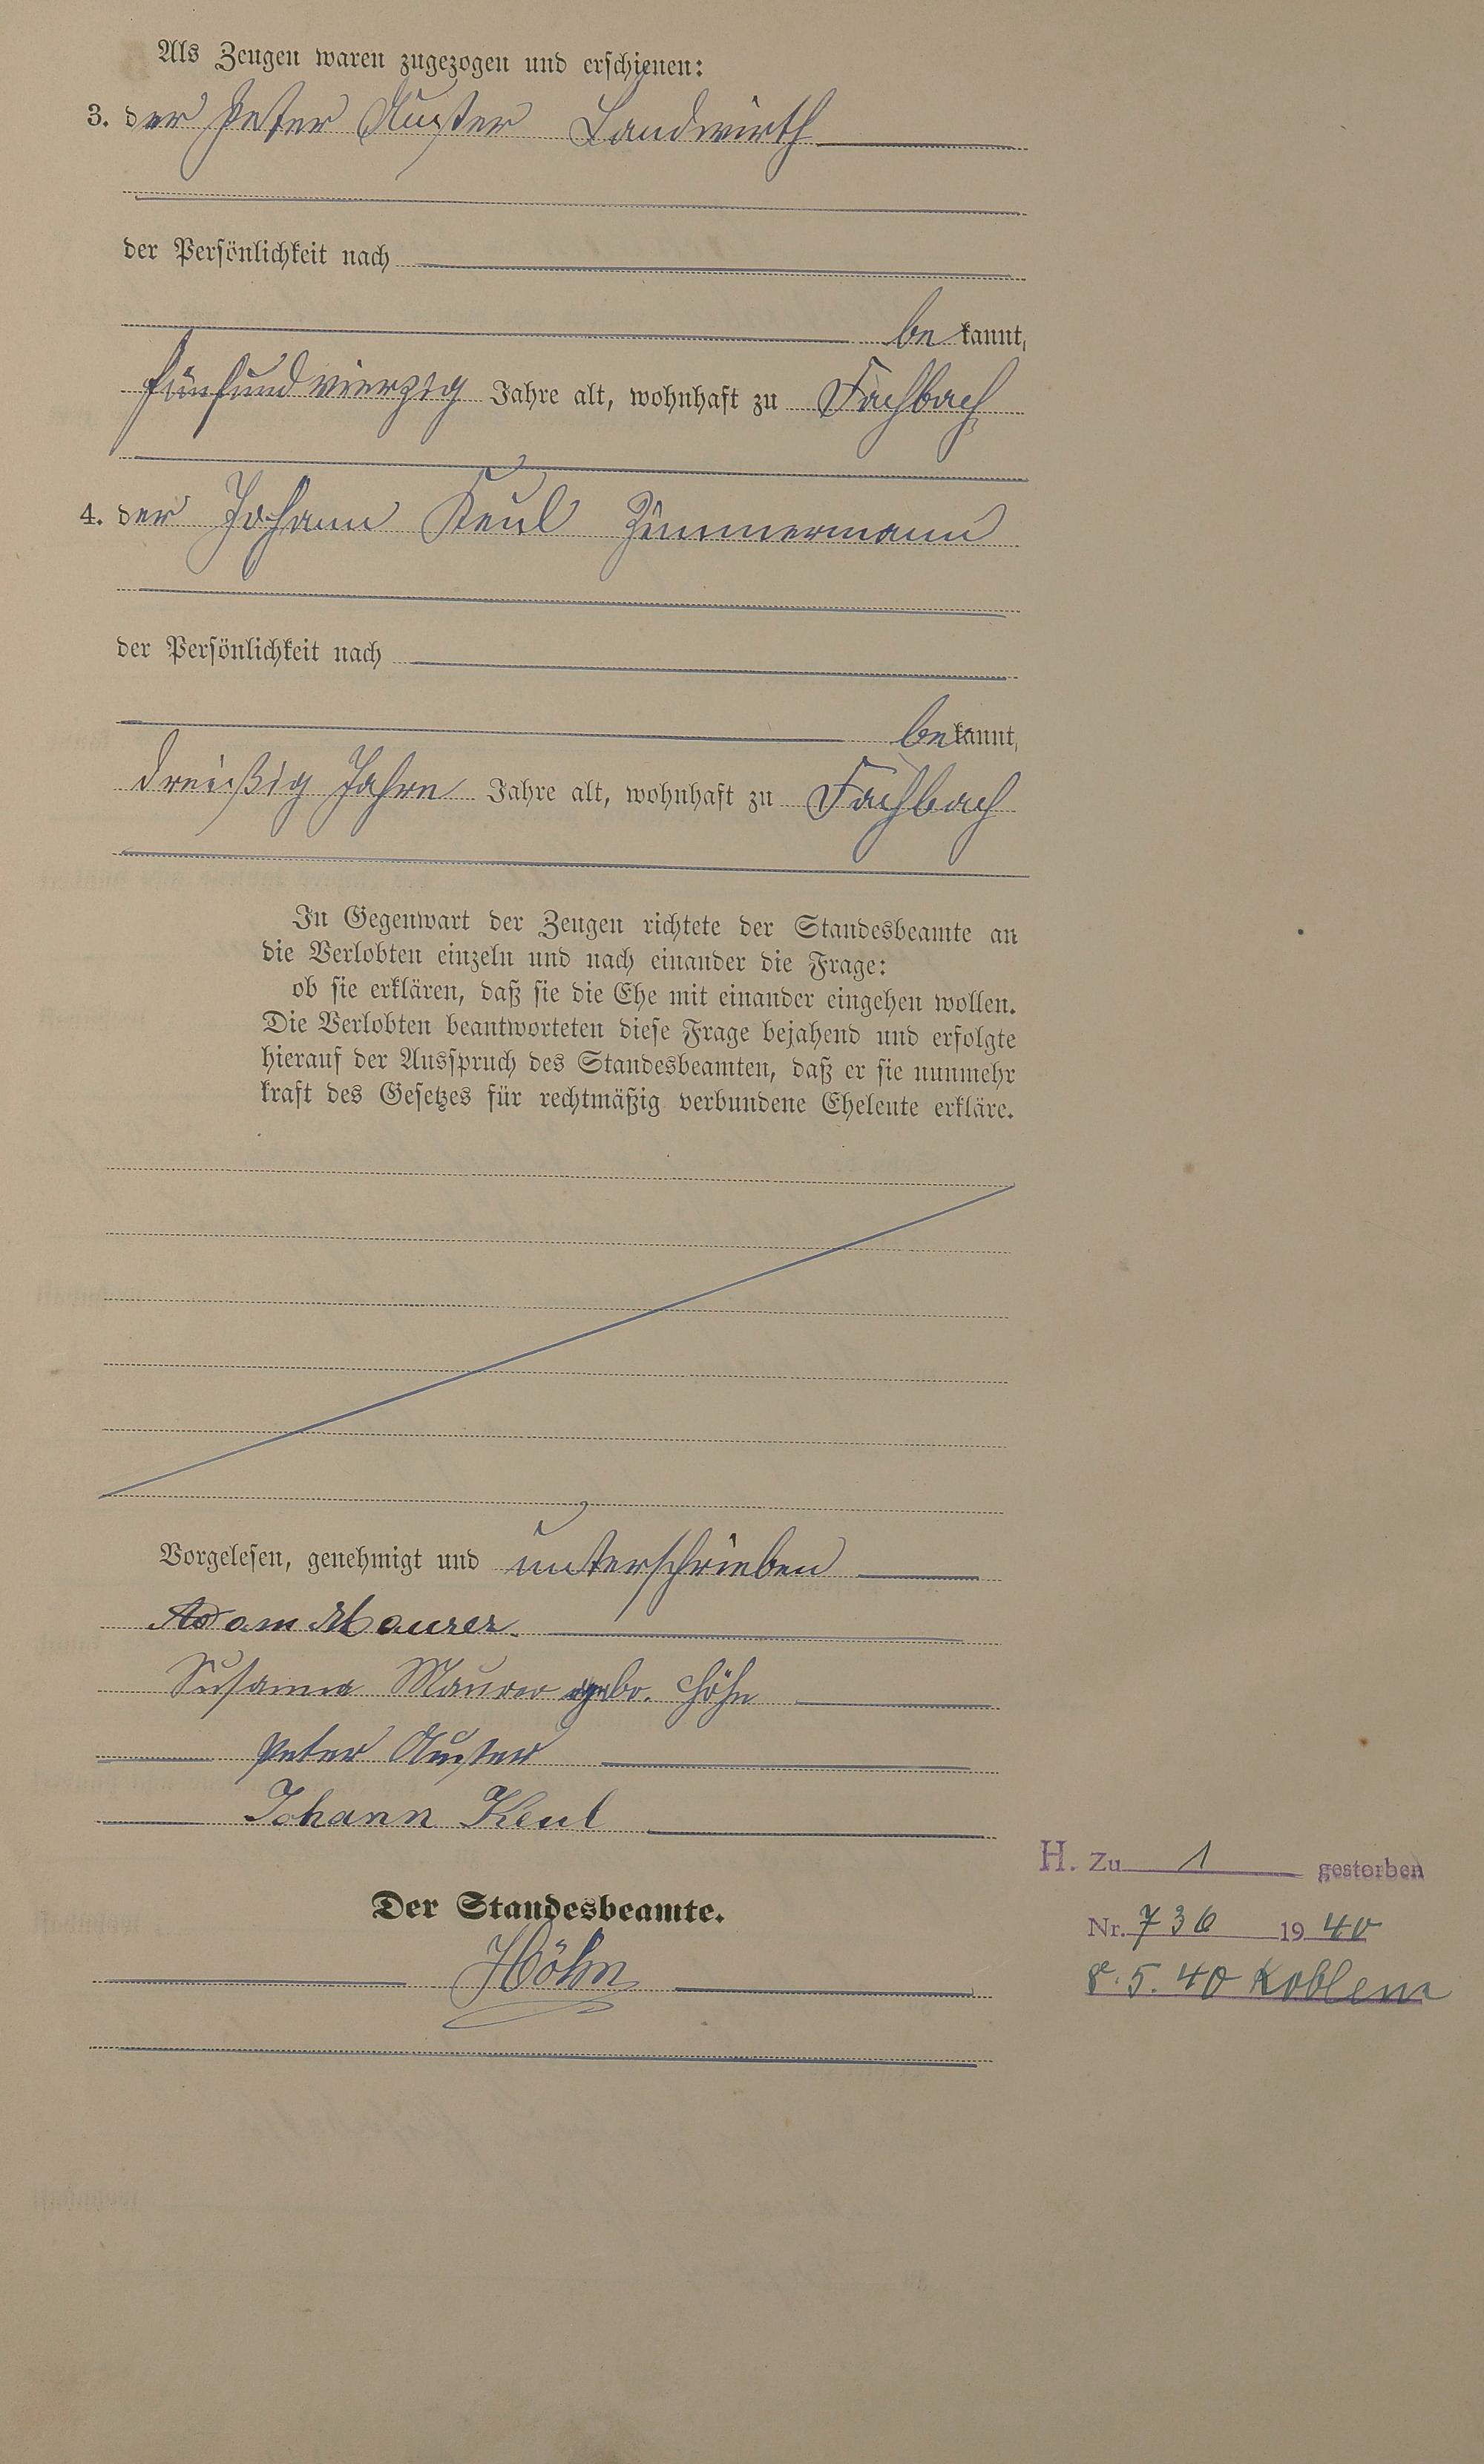 Als Zeugen waren zugezogen und erschienen:
3. der Peter Auster Landwirth
der Persönlichkeit nach
bekannt,
fünfundvierzig Jahre alt, wohnhaft zu Fachbach
4. der Johann Keul Zimmermann
der Persönlichkeit nach
bekannt,
dreißig Jahre Jahre alt, wohnhaft zu Fachbach
In Gegenwart der Zeugen richtete der Standesbeamte an
die Verlobten einzeln und nach einander die Frage:
ob sie erklären, daß sie die Ehe mit einander eingehen wollen.
Die Verlobten beantworteten diese Frage bejahend und erfolgte
hierauf der Ausspruch des Standesbeamten, daß er sie nunmehr
kraft des Gesetzes für rechtmäßig verbundene Eheleute erkläre.
Vorgelesen, genehmigt und unterschrieben
Adam Maurer.
Susanna Maurer gebr. Höhn
Peter Auster
Johann Keul
Der Standesbeamte.
Höhn
H. Zu 1 gestorben
Nr. 736 1940
8.5.40 Koblenz